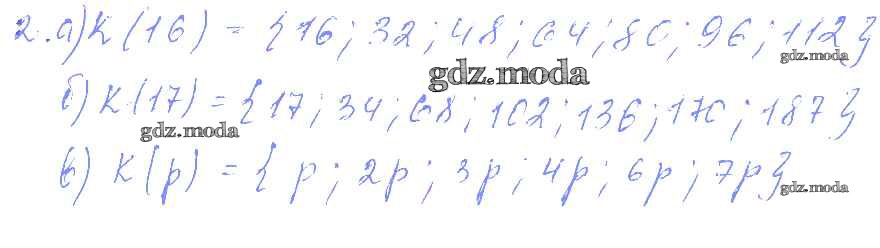 2. а) К(16) = {16; 32; 48; 64; 80; 96; 112}
gdz.moda
gdz.moda
б) К(17) = {17; 34; 68; 102; 136; 170; 187}
gdz.moda
в) К(р) = {р; 2р; 3р; 4р; 6р; 7р}
gdz.moda